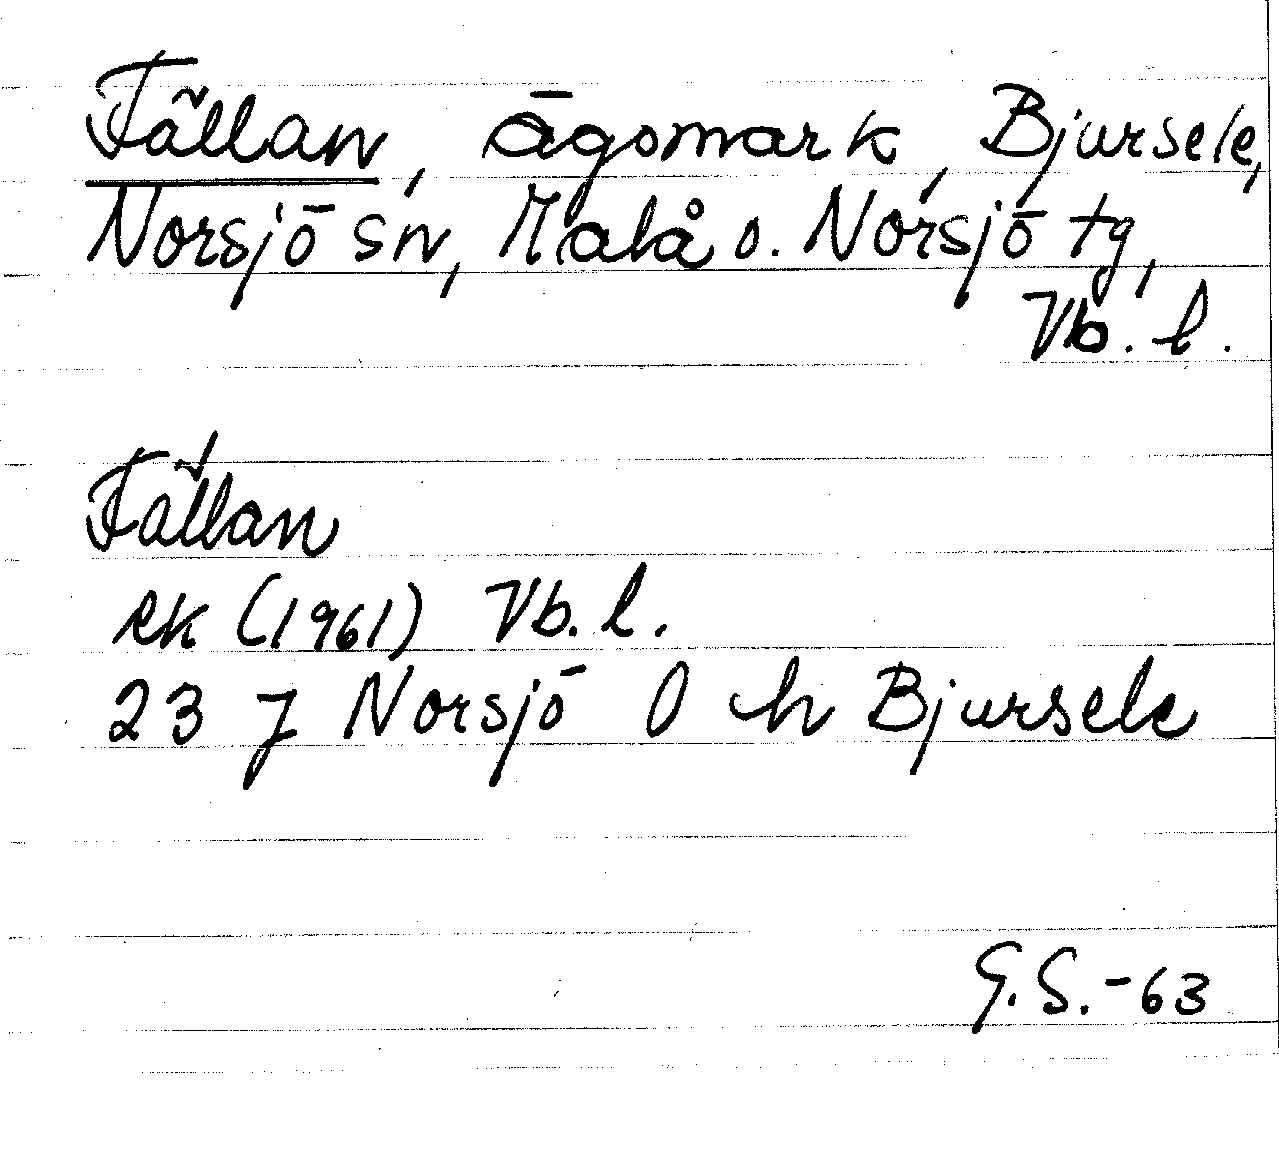 Fällan, ägomark, Bjursele,
Norsjö sn, Malå o. Norsjö tg,
Vb. l.
Fällan
RK (1961) Vb. l.
23 J Norsjö 0 h Bjursele
G.S.-63